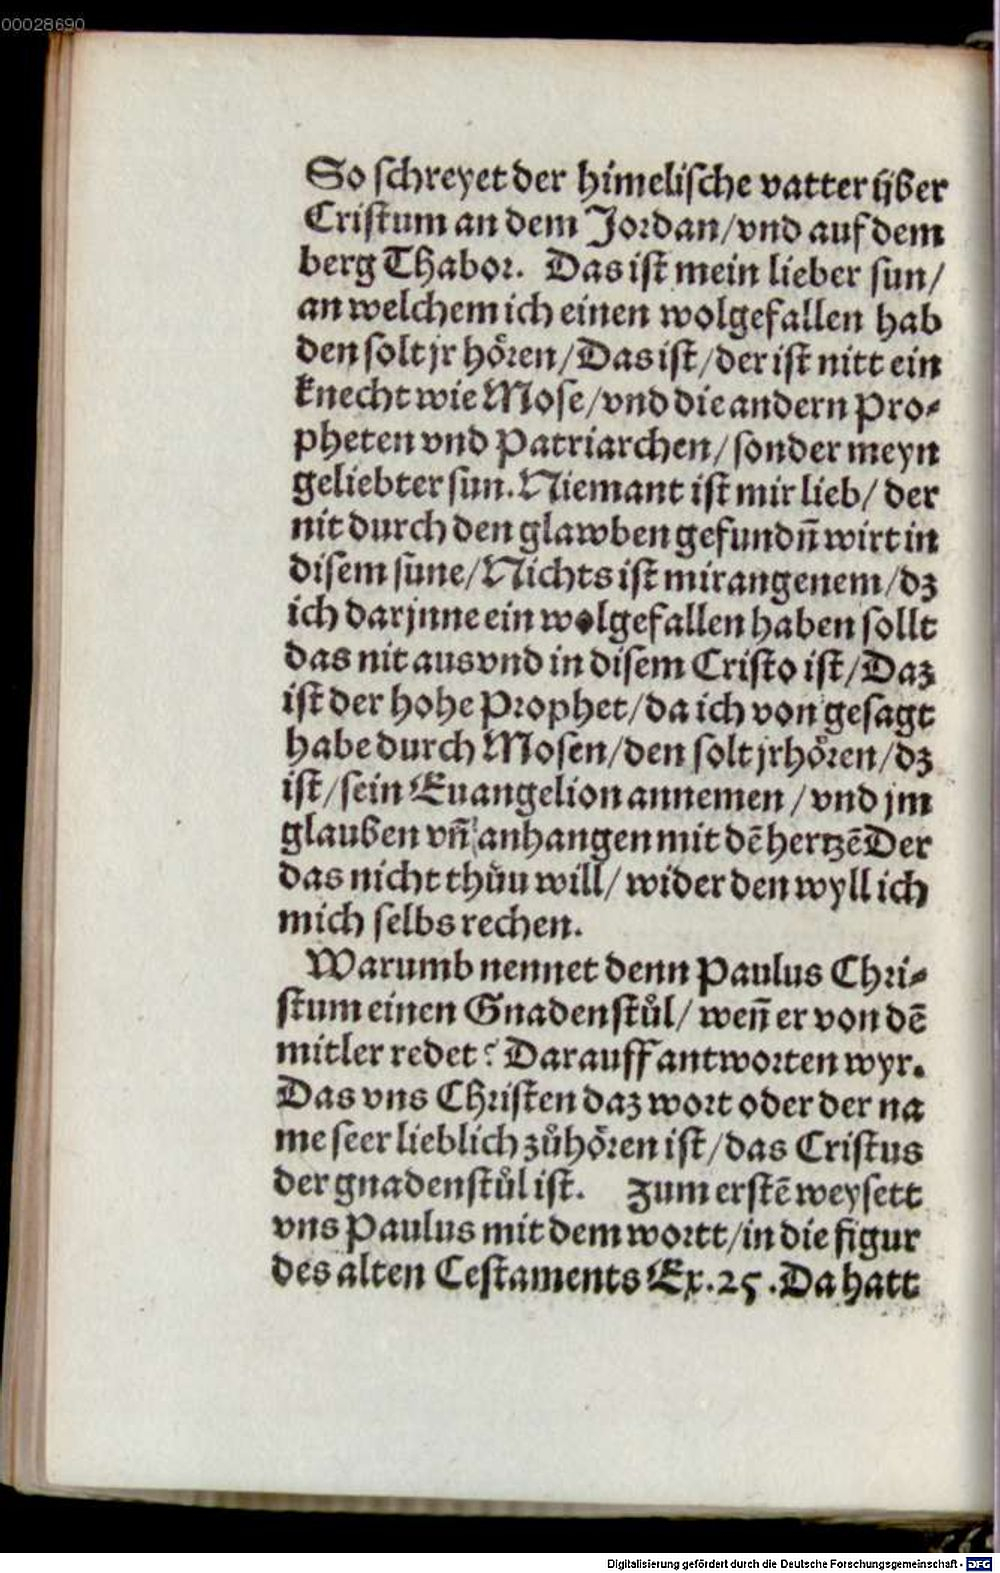 00028690
So schreyet der himelische vatter vͤber
Cristum an dem Jordan/vnd auf dem
berg Thabor. Das ist mein lieber sun/
an welchem ich einen wolgefallen hab
den solt jr hoͤren/Das ist/der ist nitt ein
knecht wie Mose/vnd die andern Pro⸗
pheten vnd Patriarchen/sonder meyn
geliebter sun. Niemant ist mir lieb/ der
nit durch den glawben gefundñ wirt in
disem sune/Nichts ist mir angenem/dz
ich darjnne ein wolgefallen haben sollt
das nit aus vnd in disem Cristo ist/Daz
ist der hohe Prophet/da ich von gesagt
habe durch Mosen/den solt jr hoͤren/dz
ist/sein Euangelion annemen /vnd jm
glauben vñ anhangen mit dē hertzē Der
das nicht thuͦn will/ wider den wyll ich
mich selbs rechen.
Warumb nennet denn Paulus Chri⸗
stum einen Gnadenstuͦl/ weñ er von dē
mitler redet? Darauff antworten wyr.
Das vns Christen daz wort oder der na
me seer lieblich zuͦ hoͤren ist/das Cristus
der gnadenstuͦl ist. Zum erstē weysett
vns Paulus mit dem wortt/in die figur
des alten Testaments Ex.25.Da hatt
Digitalisierung gefördert durch die Deutsche Forschungsgemeinschaft - DFG